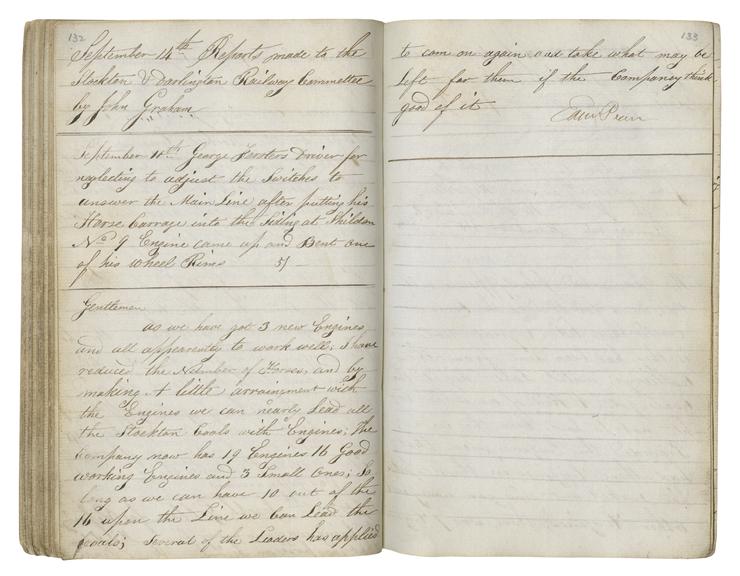 132
September 14th Reports made to the
Stockton & Darlington Railway Committee
by John Graham
September 10th George Forsters Driver for
neglecting to adjust the Switches to
answer the Main Line after putting his
Horse Carrage into the Siding at Shildon
No 9 Engine came up and Bent one
of his wheel Rims 5/
Gentlemen
as we have got 3 new Engines
and all appearently to work well; I have
reduced the Number of Horses, and by
making A little arraingment with
the Engines we can nearly Lead all
the Stockton Coals with Engines; The
Company now has 19 Engines 16 Good
working Engines and 3 Small Ones; So
long as we can have 10 out of the
16 upon the Line we Can Lead the
Coals; Several of the Leaders has applied
133
to come on again and take what may be
left for them if the Company think
good of it